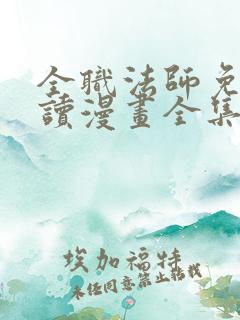 全職法師免
讀漫畫全集
埃加福特
未任同意禁止轉載